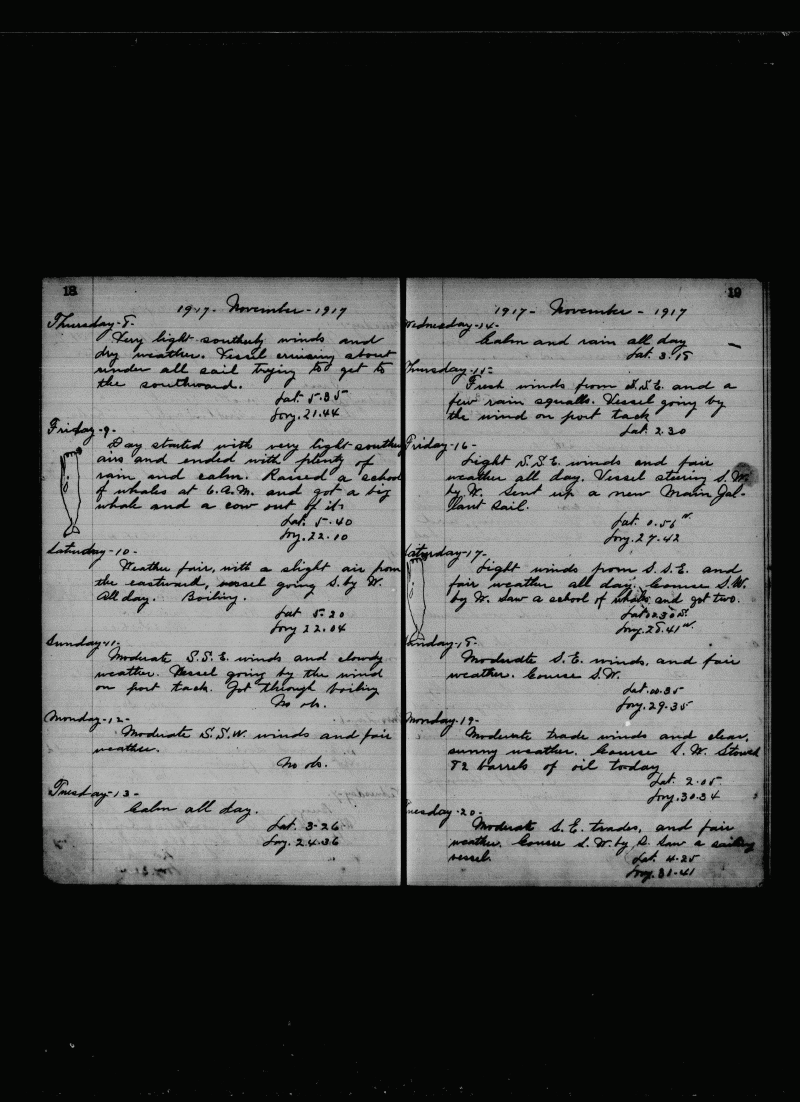 18
1917. November - 1917
Thursday - 8 -
Very light southerly winds and
dry weather. Vessel cruising about
under all sail trying to get to
the southward.
Lat. 5.35
Long. 21.44
Friday - 9 -
Day started with very light southerly
airs and ended with plenty of
rain and calm. Raised a school
of whales at 6. A.M. and got a big
whale and a cow out of it.
Lat. 5.40
Long. 22.10
Saturday - 10 -
Weather fair, with a slight air from
the eastward, vessel going S. by W.
All day. Boiling.
Lat 5.20
Long 22.04
Sunday - 11 -
Moderate S.S.E. winds and clowdy
weather. Vessel going by the wind
on port tack. Got through boiling
No ob.
Monday - 12 -
Moderate S.S.W. winds and fair
weather.
No ob.
Tuesday - 13 -
Calm all day.
Lat. 3-26
Long. 24.36
19
1917 - November - 1917
Wednesday - 14 -
Calm and rain all day
Lat. 3.18
Thursday - 15 -
Fresh winds from S.S.E. and a
few rain squalls. Vessel going by
the wind on port tack
Lat. 2.30
Friday - 16 -
Light S.S.E. winds and fair
weather all day. Vessel steering S.W.
by W. Sent up a new Main Gal-
lant sail.
Lat. 0.56 N.
Long. 27.42
Saturday - 17 -
Light winds from S.S.E. and
fair weather all day. Course S.W.
by W. Saw a school of whales and got two.
Lat 0230 S.
Long. 28.41 W.
Sunday - 18 -
Moderate S.E. winds, and fair
weather. Course S.W.
Long. 29.35
Monday - 19 -
Moderate trade winds and clear,
sunny weather. Course S.W. Stowed
82 barrels of oil today
Lat. 2.05
Long. 30.34
Tuesday - 20 -
Moderate S.E. trades, and fair
weather. Course S.W. by S. Saw a sailing
vessel.
Lat. 4.25
Long. 31.41